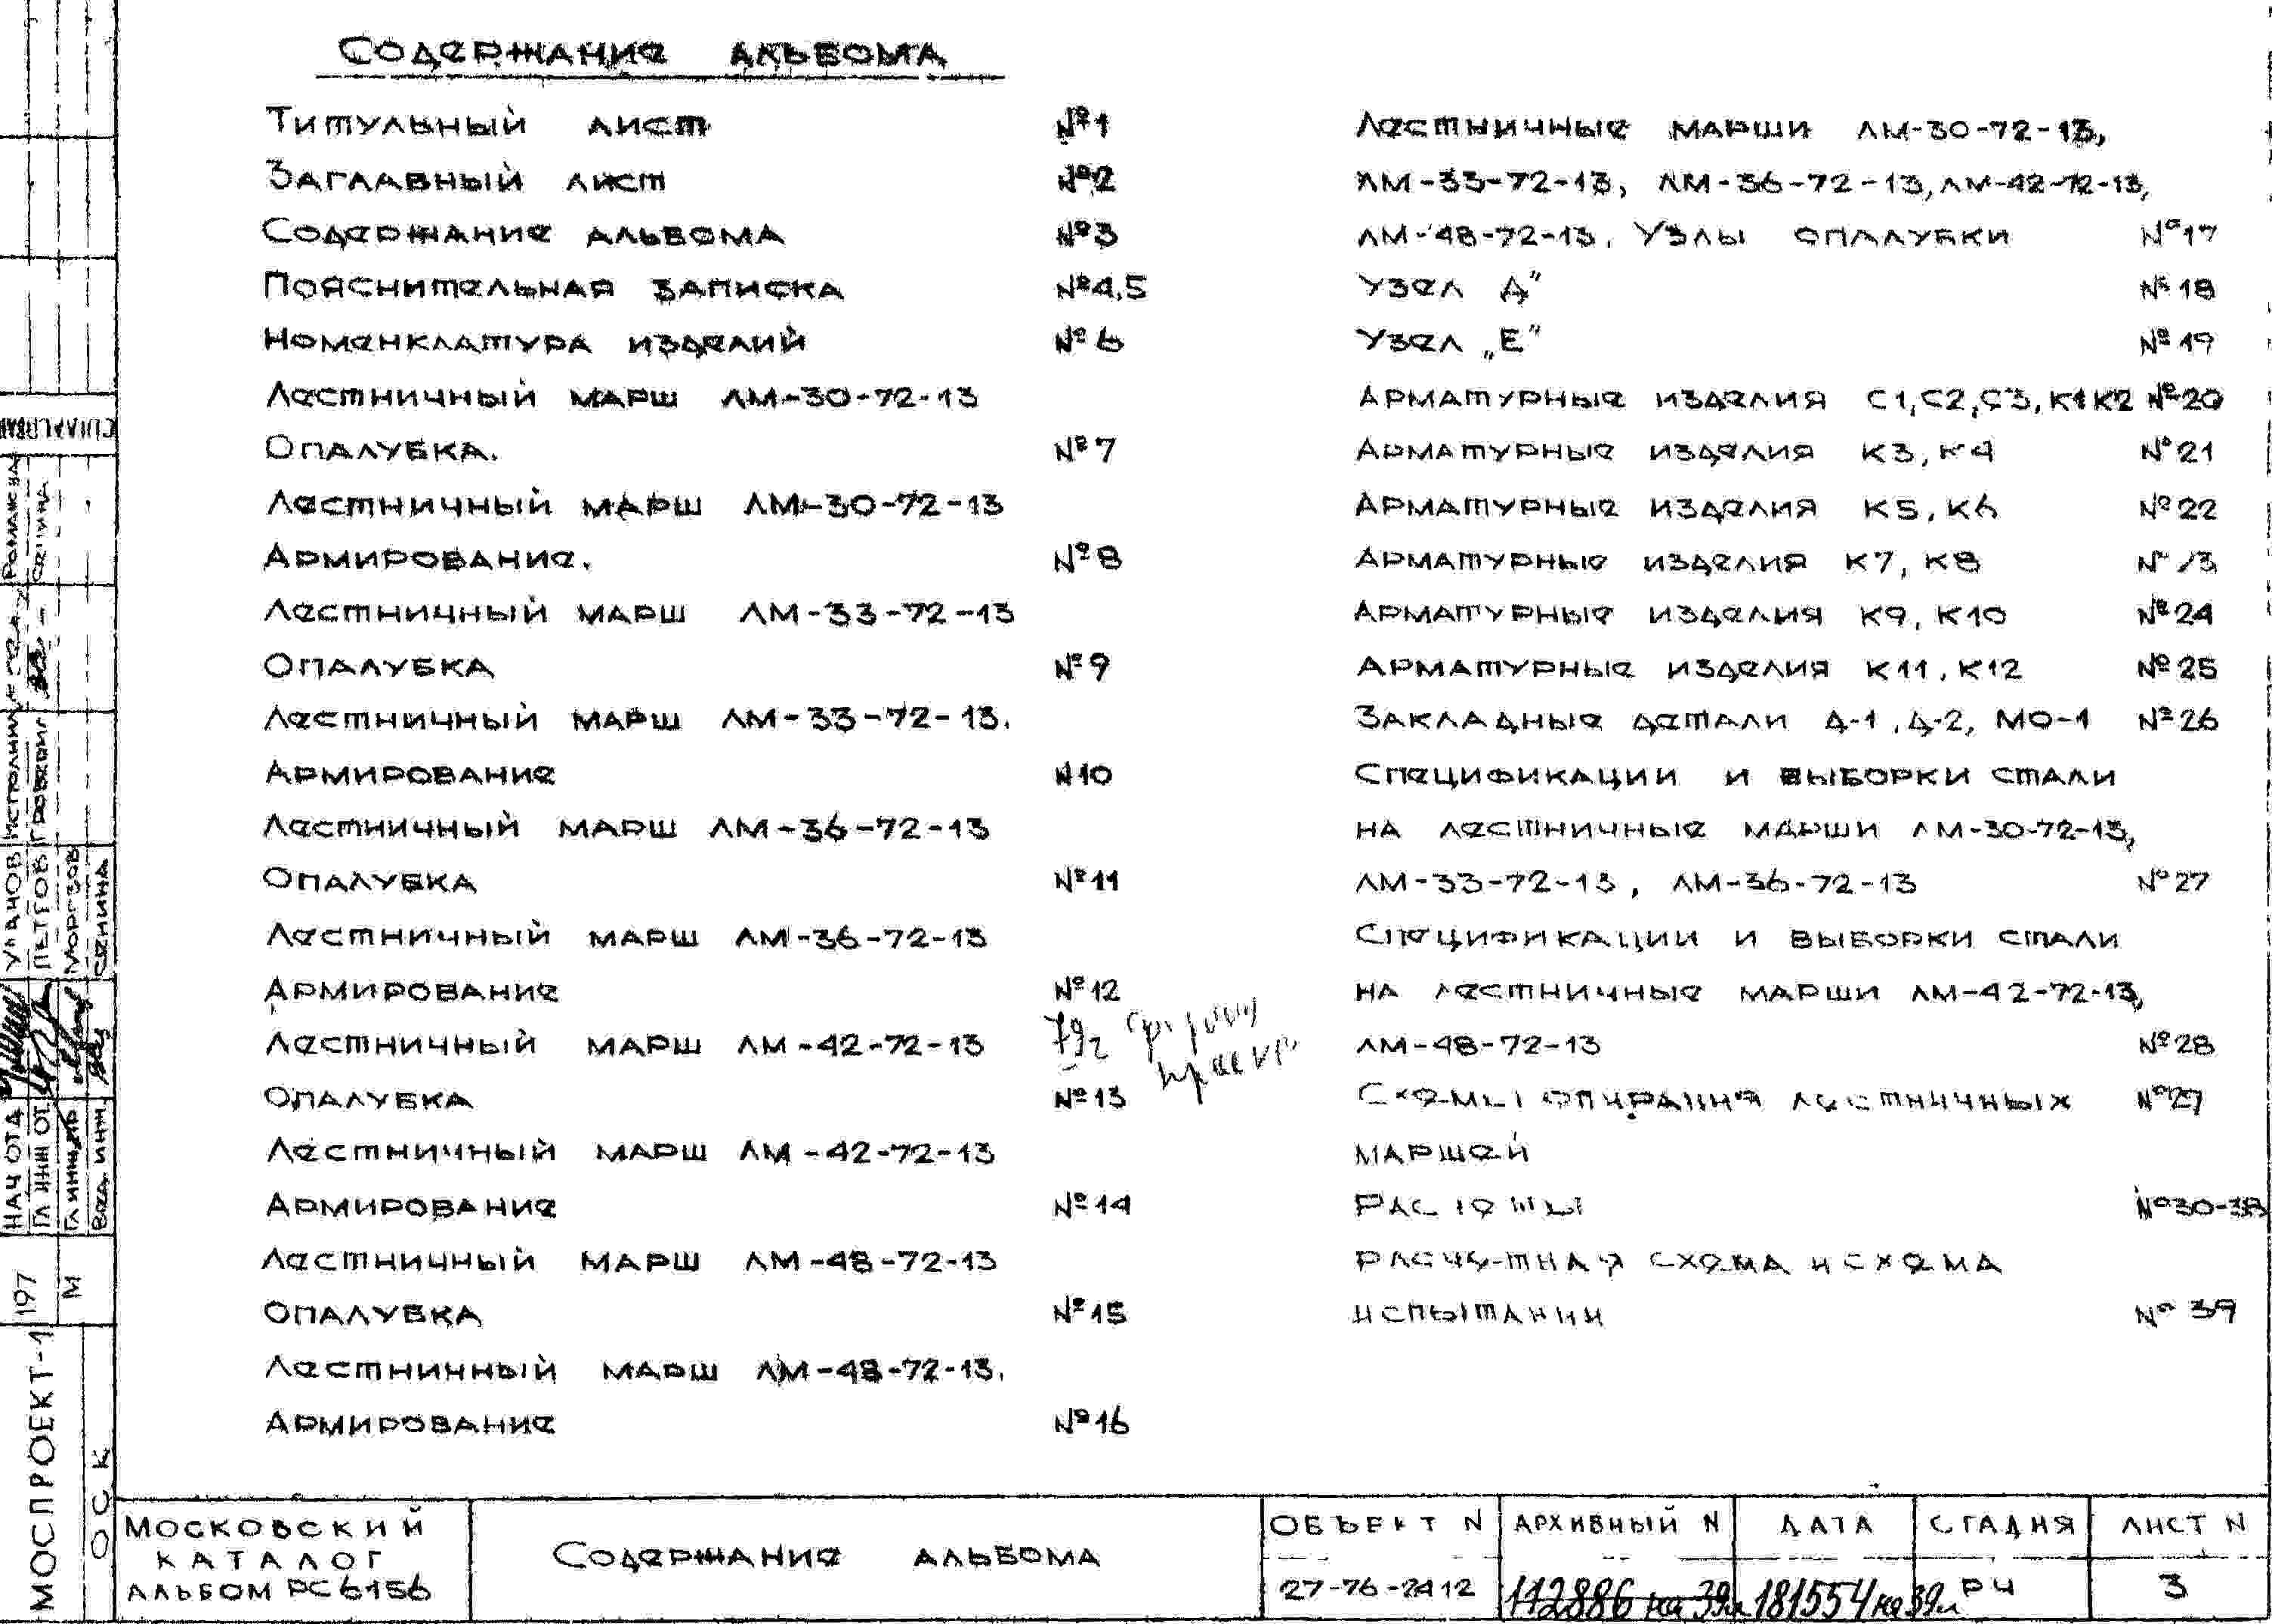 Содержание альбома
Титульный лист №1
Заглавный лист №2
Содержание альбома №3
Пояснительная записка №4,5
Номенклатура изделий №6
Лестничный марш ЛМ-30-72-13
Опалубка. №7
Лестничный марш ЛМ-30-72-13
Армирование. №8
Лестничный марш ЛМ-33-72-13
Опалубка №9
Лестничный марш ЛМ-33-72-13.
Армирование №10
Лестничный марш ЛМ-36-72-13
Опалубка №11
Лестничный марш ЛМ-36-72-13
Армирование №12
Лестничный марш ЛМ-42-72-13
Опалубка №13
Лестничный марш ЛМ-42-72-13
Армирование №14
Лестничный марш ЛМ-48-72-13
Опалубка №15
Лестничный марш ЛМ-48-72-13.
Армирование №16
Лестничные марши ЛМ-30-72-13,
ЛМ-33-72-13, ЛМ-36-72-13, ЛМ-42-72-13,
ЛМ-48-72-13. Узлы опалубки №17
Узел Д" №18
Узел „Е" №19
Арматурные изделия С1, С2, С3, К1 К2 №20
Арматурные изделия К3, К4 №21
Арматурные изделия К5, К6 №22
Арматурные изделия К7, К8
Арматурные изделия К9, К10 №24
Арматурные изделия К11, К12 №25
Закладные детали Д-1, Д-2, МО-1 №26
Спецификации и выборки стали
на лестничные марши ЛМ-30-72-13,
ЛМ-33-72-13, ЛМ-36-72-13 №27
Спецификации и выборки стали
на лестничные марши ЛМ-42-72-13,
ЛМ-48-72-13 №28
Схемы опирания лестничных
маршей
№30-38
Расчетная схема и схема
испытании № 39
Согласован
Нач отд Уланов
Гл инж от. Петров
Гл инж пр Моргзов
Вед. инж. Сенина
Исполнил
Проверил Сенина
197
М
Моспроект-1
ОСК
Московский
каталог
альбом РС 6156
Содержание альбома
Объект N Архивный N Дата Стадия Лист N
27-76-2412 112886 на 39л 181554 на 39л РЧ 3